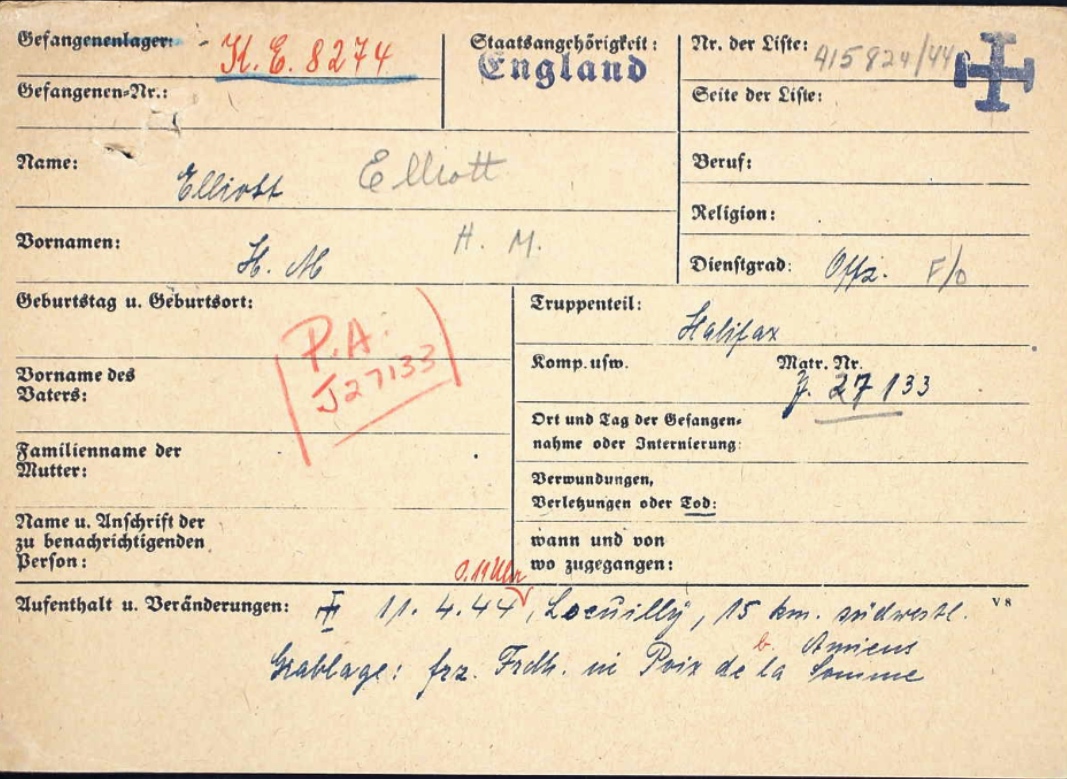 Gefangenenlager: K. E. 8274
Staatsangehörigkeit:
England
Nr. der Liste: 415824/44
Gefangenen=Nr.:
Seite der Liste:
Name: Elliott Elliott
Beruf:
Religion:
Vornamen: H. M H. M.
Dienstgrad: Offz. F/O
Geburtstag u. Geburtsort:
P.A.
J27133
Truppenteil: Halifax
Komp.usw. Matr. Nr.
J. 27 133
Vorname des
Vaters:
Ort und Tag der Gefangen=
nahme oder Internierung:
Familienname der
Mutter:
Verwundungen,
Verletzungen oder Tod:
Name u. Anschrift der
zu benachrichtigenden
Person:
wann und von
wo zugegangen:
0.19 Uhr
Aufenthalt u. Veränderungen: 11. 4. 44, Locuilly, 15 km. südwestl.
V 8
b. Amiens
Grablage: frz. Frdh. in Poix de la Somme